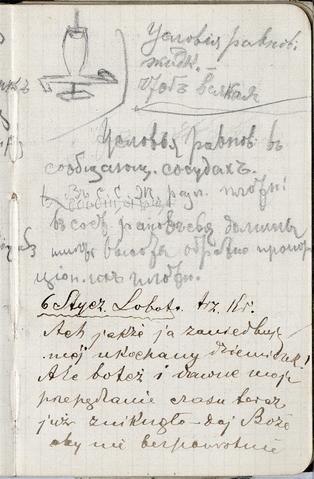 Условия равнов.
жидк. –
чтобъ всякая
Условья равнов. въ
сообщающ. сосудахъ.
разн. плотн.
въ сост. равновесья должны
высоты обратно пропор
цион. ихъ плотн.
6 Stycz. Sobot. trz. Kr.
Ach jakże ja zaniedbuję
mój ukochany dzienniczek!
Ale boteż i dawne moje
przepędzanie czasu teraz
już zniknęło – daj Boże
aby nie bezpowrotnie